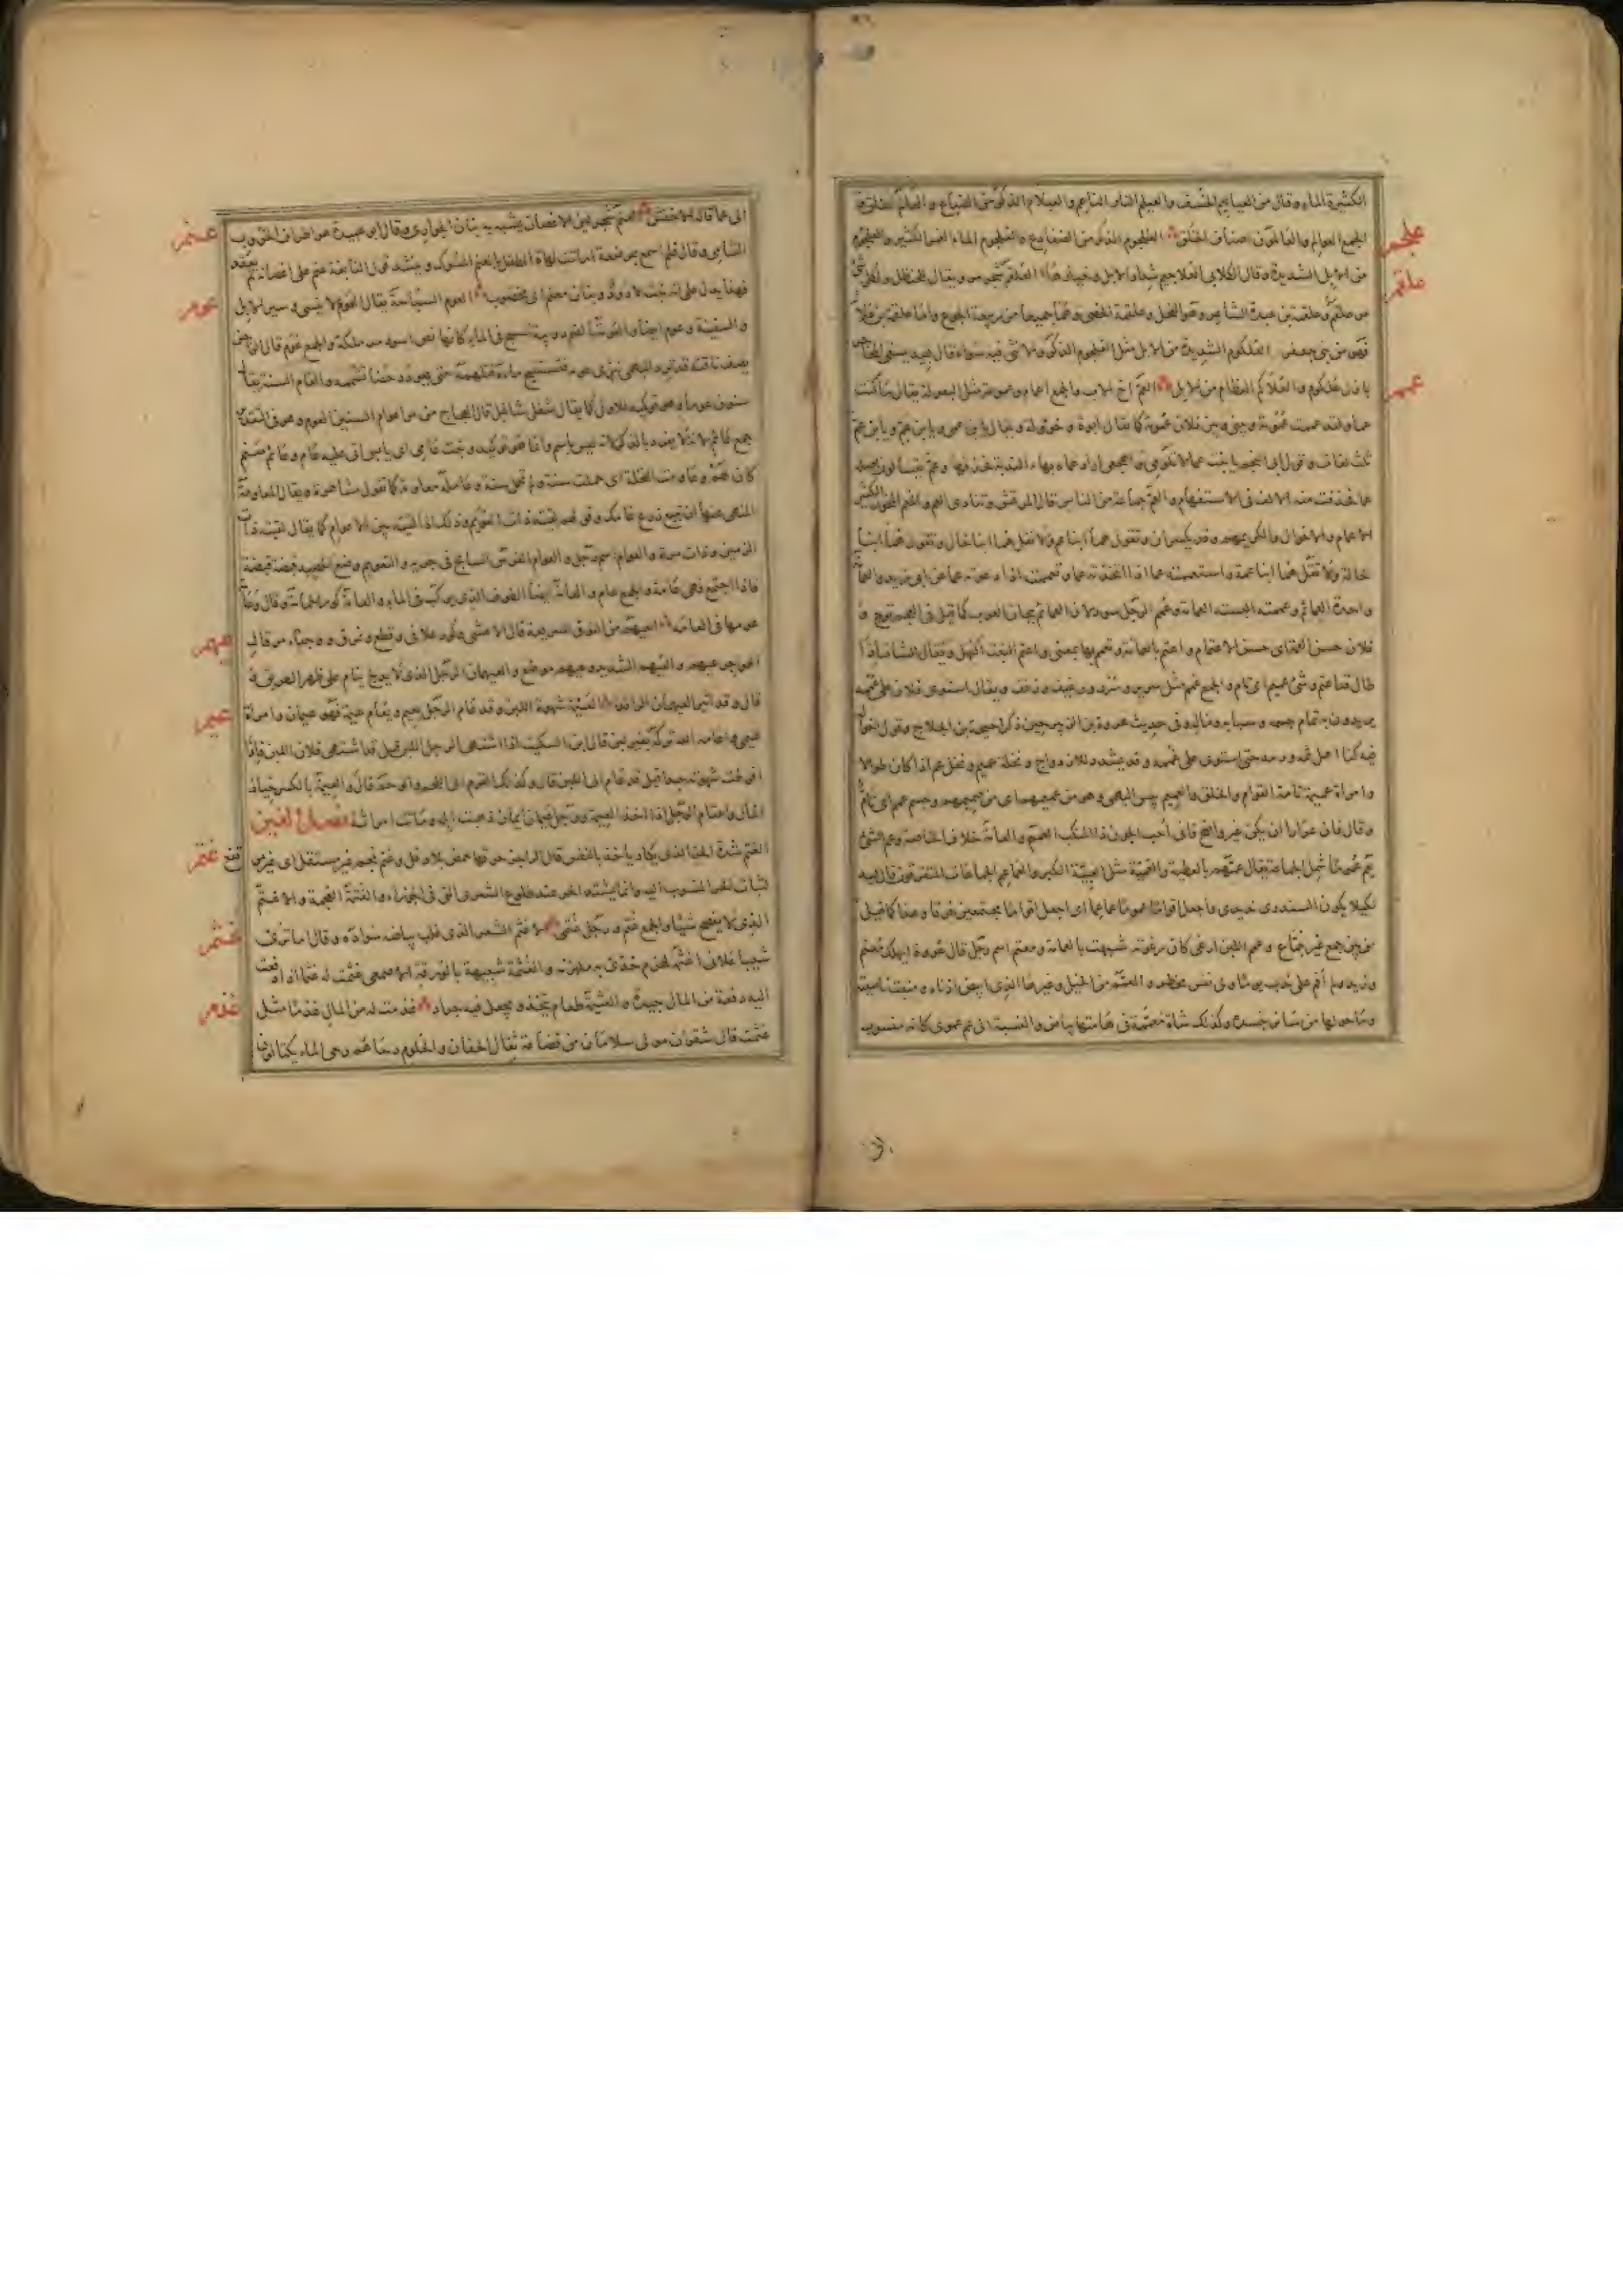 الكثيرة الماء وقال من العياليم الخسف والعيلم التار الناعم والعيلام الذكر من الضباع و العالم الخلق و
علجم
الجمع العوالم والعالمون اصناف الخلق العلجوم الذكر من الضفادع والعلجوم الماء الغمر الكثير والعلجوم
من الابل الشديدة وقال الكلابي العلاجيم شداد الابل وخيارها العلقم شجر مر ويقال للحنظل ولكل شئ
علقم
مر علقم وعلقمة بن عبدة الشاعر وهو الفحل وعلقمة الخصى وهما جميعا من ربيعة الجوع واما علقمة بن علاثة
فهو من بني جعفر العلكوم الشديدة من الابل مثل العلجوم الذكر والانثى فيه سواء قال لبيد يسقى
عمم
بازل علكوم والعلاكم العظام من الابل العم اخ الاب والجمع اعمام وعمومة مثل البعولة يقال ما كنت
عما ولقد عممت عمومة وبيني وبين فلان عمومة كما يقال ابوة وخؤولة و يقال يا ابن عمي ويا ابن عم ويا ابن عم
ثلث لغات وقول ابي النجم يا بنت عما لا تلومي واهجعي اراد عماه بهاء الندبة فحذفها وعم يتساءلون اصله
عما فحذفت منه الالف في الاستفهام والعم جماعة من الناس قال المرقش وتنادى العم والمعم المخول الكثير
الاعمام والاخوال والكريمهم وقد يكسران وتقول هما ابنا عم ولا تقل هما ابنا خال وتقول هما ابنا
خالة ولا تقل هما ابنا عمة واستعممته عما اذا اتخذته عما وتعممت اذا دعوته عما عن ابي زيد والعمامة
واحدة العمائم وعممته البسته العمامة وعمم الرجل سود لان العمائم تيجان العرب كما قيل في العجم توج و
فلان حسن العمة اى حسن الاعتمام واعتم بالعمامة وتعمم بها بمعنى واعتم النبت اكتهل ويقال للشاب اذا
طال قد اعتم وشئ عميم اى تام والجمع عمم مثل سرير وسرر ورغيف ورغف ويقال استوى فلان على عممه
يريدون به تمام جسمه وشبابه وماله وفي حديث عروة بن الزبير حين ذكر احيحة بن الجلاح وقول اخواله
فيه كنا اهل ثمه ورمه حتى استوى على عممه وقد يشدد للازدواج و نخلة عميم ونخل عم اذا كان طوالا
وامراة عميمة تامة القوام والخلق والعميم يبيس البهمى وهو من عميمهم اى من صميمهم وجسم عمم اى تام
وقال فان عرارا ان يكن غير واضح فاني احب الجون ذا المنكب العمم والعامة خلاف الخاصة وعم الشئ
يعم عموما شمل الجماعة يقال عمهم بالعطية والعمية مثل العبية الكبر والعماعم الجماعات المتفرقون قال لبيد
لكيلا يكون السندرى نديدتي واجعل اقواما عموما عماعما اى اجعل اقواما مجتمعين فرقا وهذا كما قيل
من بين جمع غير جماع و عمم اللبن ارغى كان رغوته شبهت بالعمامة و معتم اسم رجل قال عروة ايهلك معتم
وزيد ولم اقم على ندب يوما ولي نفس مخطر و المعمم من الخيل وغيرها الذي ابيض اذناه ومنبت ناصيته
وما حولها من سائر جسده وكذلك شاة معممة في هامتها بياض والنسبة الى عم عموى كانه منسوب
الى عما قاله الاخفش العنم شجر لين الاغصان يشبه به بنان الجوارى وقال ابو عبيدة هو اطراف الخروب
عنم
الشامي وقال فلم اسمع بمرضعة امالت لهاة الطفل بالعنم المسوك وينشد قول النابغة عنم على اغصانه لم يعقد
فهذا يدل على انه نبت لا دود وبنان معنم اى مخضوب العوم السباحة يقال العوم لا ينسى وسير الابل
عوم
والسفينة عوم ايضا والعومة بالضم دويبة تسبح في الماء كانها فص اسود مدملكة والجمع عوم قال الراجز
سنون عوم وهو توكيد للاول كما يقال شغل شاغل قال العجاج من مر اعوام السنين العوم وهو في التقدير
جمع عائم الا انه لا يفرد بالذكر لانه ليس باسم وانما هو توكيد ونبت عامي اى يابس اتى عليه عام
وعاومت النخلة اى حملت سنة ولم تحمل سنة وعامله معاومة كما تقول مشاهرة ويقال المعاومة
المنهى عنها ان تبيع زرع عامك وقولهم لقيته ذات العويم وذلك اذا لقيته بين الاعوام كما يقال لقيته ذات
الزمين وذات مرة والعوام اسم رجل والعوام الفرس السابح في جريه والتعويم وضع الحصد قبضة قبضة
فاذا اجتمع فهي عامة والجمع عام والعامة ايضا الطوف الذي يركب في الماء والعامة كور العمامة وقال وعامة
عومها في الهامة العيهم من النوق السريعة قال الاعشى وكور علافي وقطع ونمرق ووجناء مرقال
عهم
الهواجر عيهم والعيهم الشديد وعيهم موضع والعيهمان الرجل الذي لا يدلج ينام على ظهر الطريق
قال وقد اثير العيهمان الراقدا العيمة شهوة اللبن وقد عام الرجل يعيم ويعام عيمة فهو عيمان وامراة
عيم
عيمى واعامه الله تركه بغير لبن قال ابن السكيت اذا اشتهى الرجل اللبن قيل قد اشتهى فلان اللبن فاذا
افرطت شهوته جدا قيل قد عام الى اللبن قال وكذلك القرم الى اللحم والوحم قال والعيمة بالكسر خيار
المال واعتام الرجل اذا اخذ العيمة ورجل عيمان ايمان ذهبت ابله وماتت امراته فصل الغين
غتم
الغتم شدة الحر الذي يكاد ياخذ بالنفس قال الراجز حرقها حمض بلاد فل وغتم نجم غير مستقل اى غير مرتفع
لثبات الحر المنسوب اليه وانما يشتد الحر عند طلوع الشعرى التي في الجوزاء والغتمة العجمة والاغتم
الذي لا يفصح شيئا والجمع غتم ورجل غتمي الاغثم الشعر الذي غلب بياضه سواده وقال اما ترى
غثم
شيبا علاني اغثمه لهزم خدى به ملهزمه والغثمة شبيهة بالورقة الاصمعي غثمت له غثما اذا دفعت
اليه دفعة من المال جيدة والغثيمة طعام يتخذ ويجعل فيه جراد غذمت له من المال غذما مثل
غذم
غثمت قال شقران مولى سلامان من قضاعة ثقال الجفان والحلوم رحاهم رحى الماء يكتالون